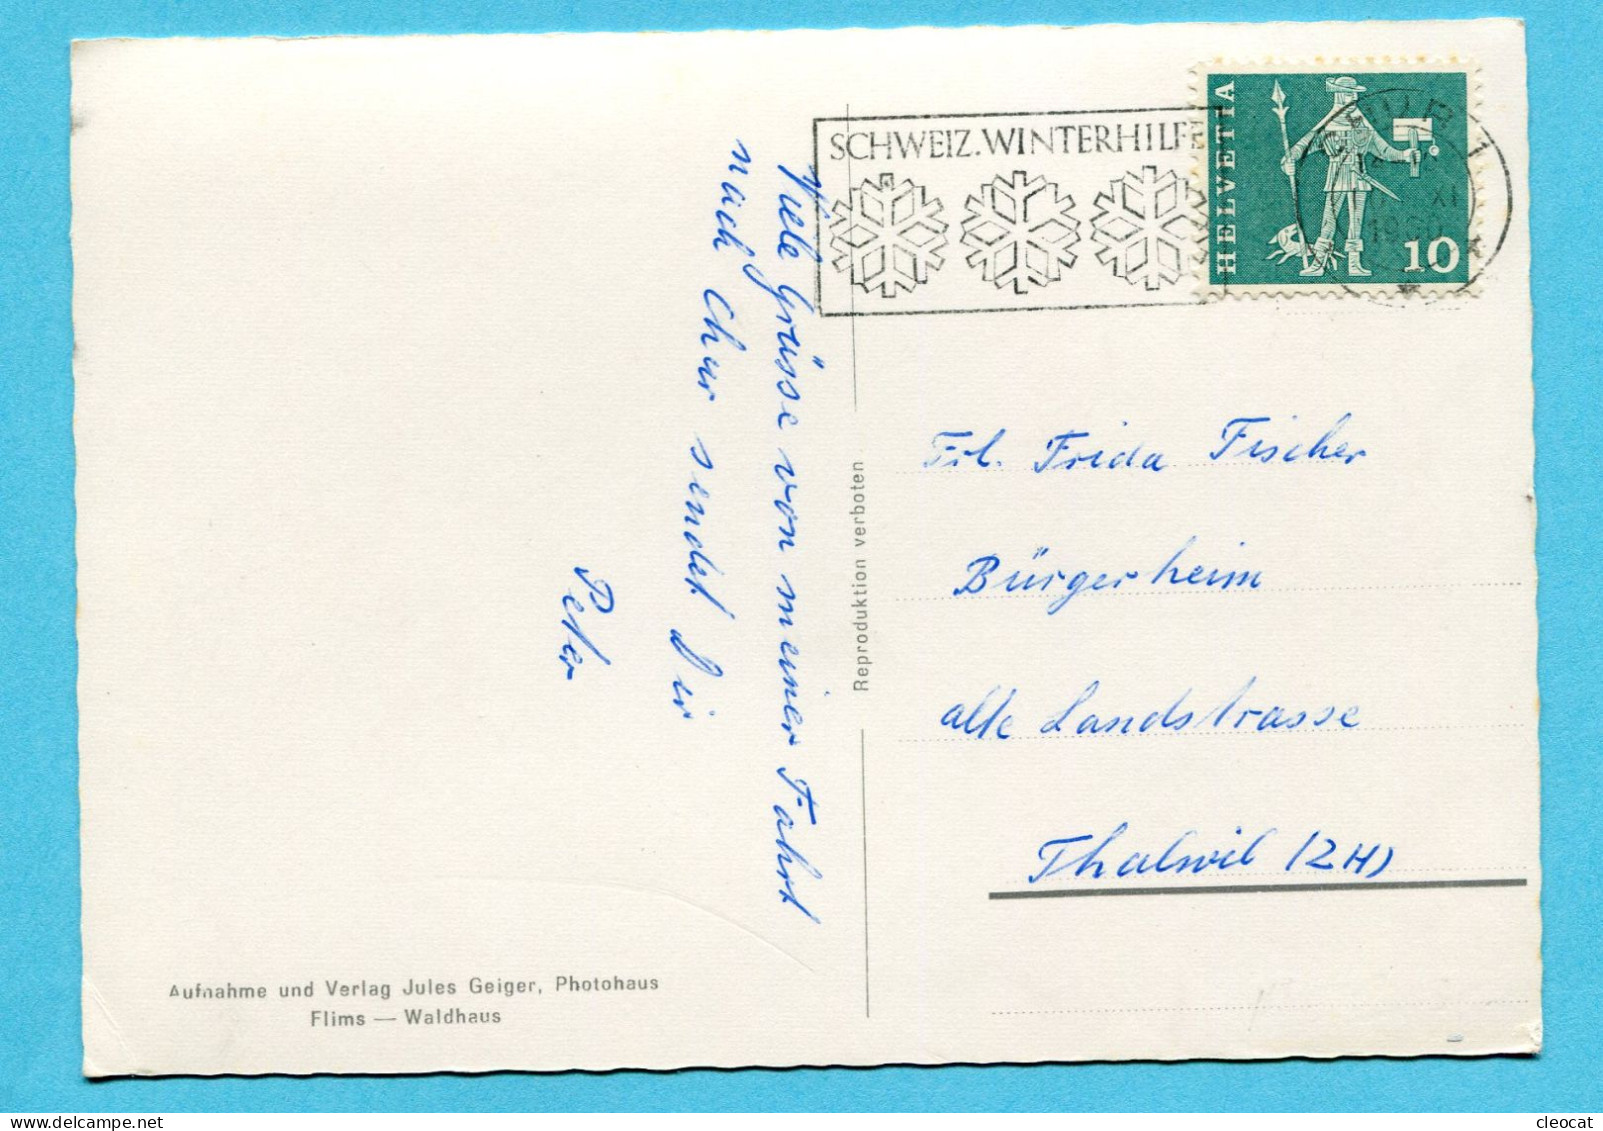 Viele Grüsse von meiner Fahrt
nach Chur sendet Dir
Peter
Aufnahme und Verlag Jules Geiger, Photohaus
Flims — Waldhaus
Reproduktion verboten
SCHWEIZ. WINTERHILFE
HELVETIA
10
Frl. Frida Fischer
Bürgerheim
alte Landstrasse
Thalwil (ZH)
cleocat